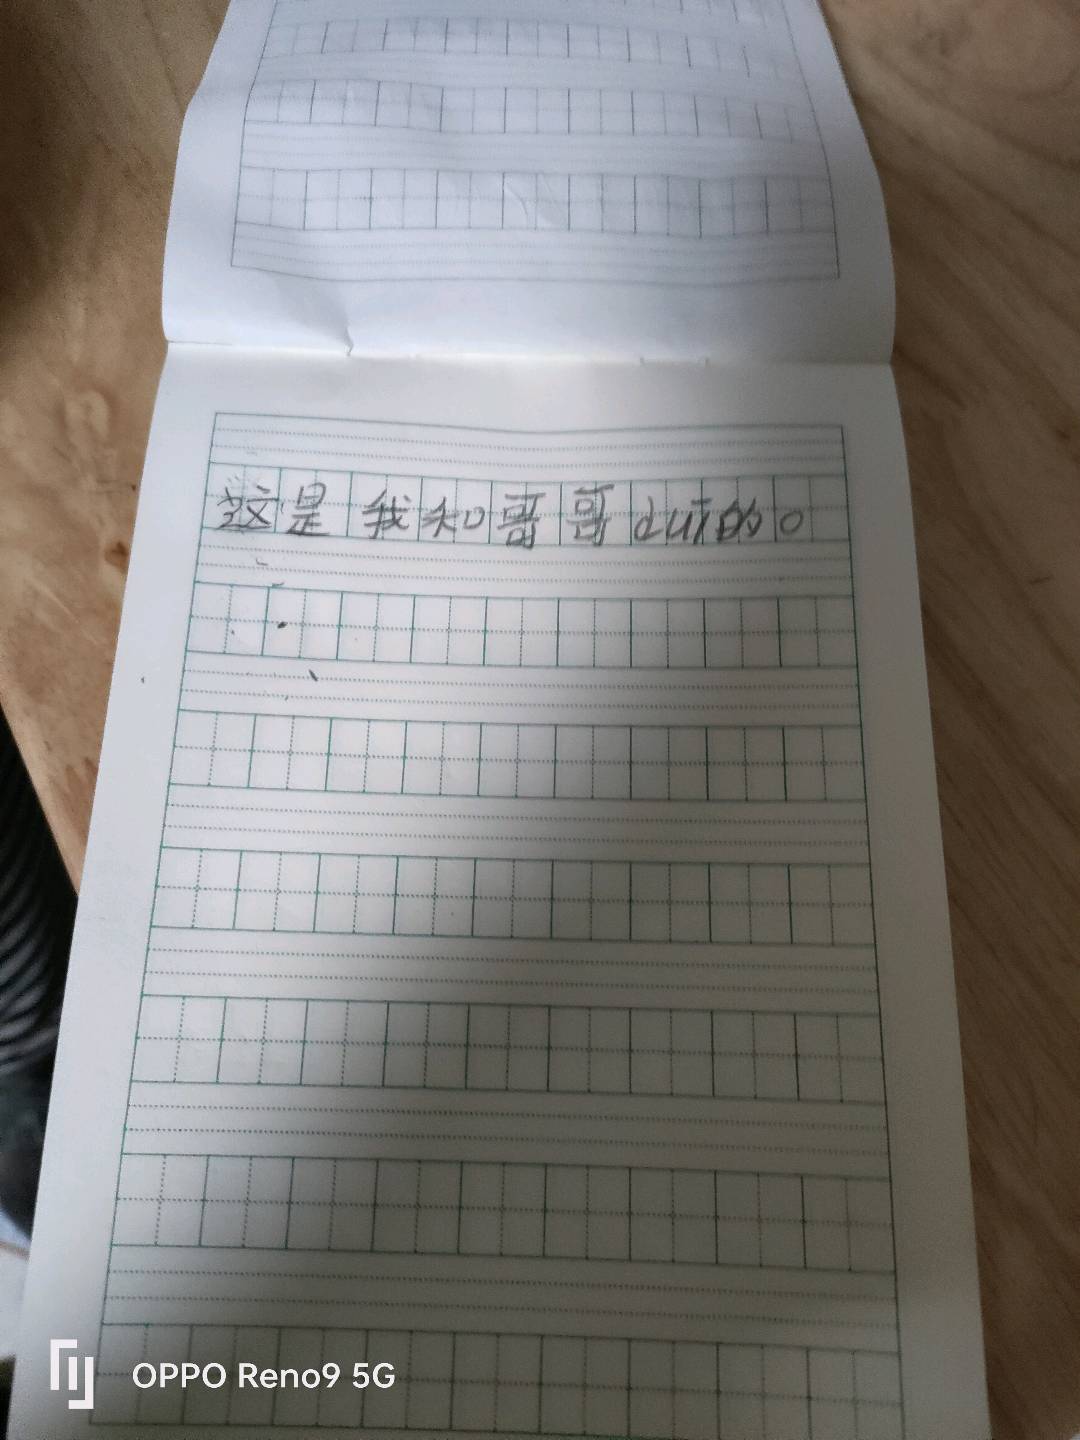 这是我和哥哥duī的。
OPPO Reno9 5G